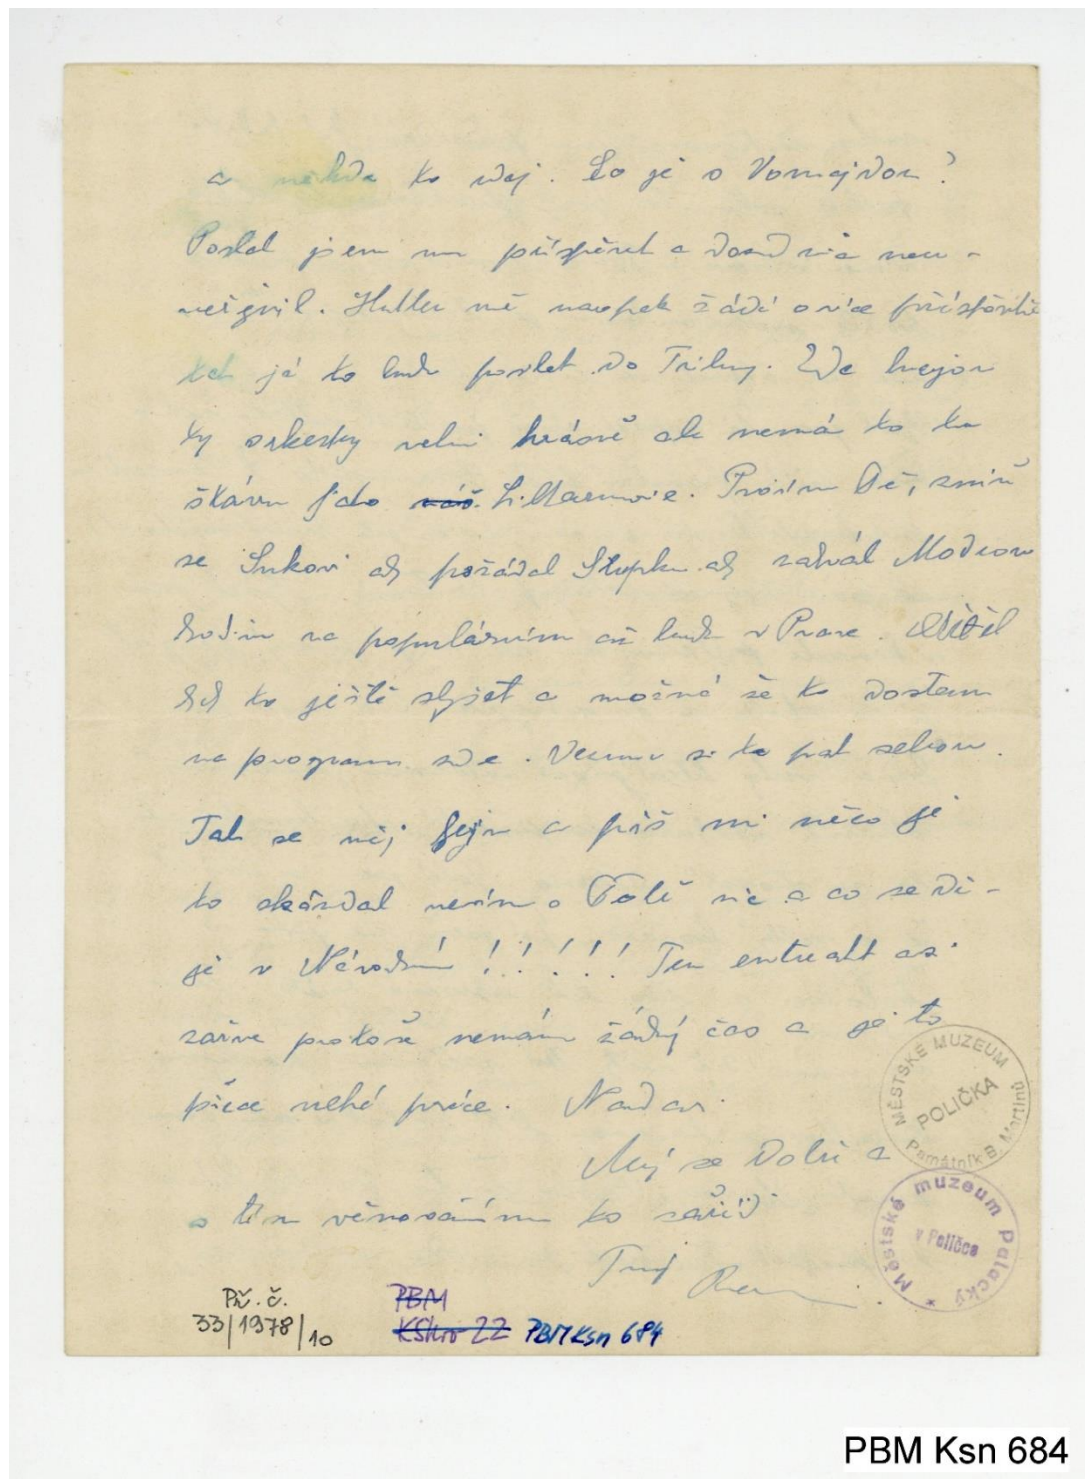 a někde to dej. Co je s Vomáčkou?
Poslal jsem mu příspěvek a dosud nic neu-
veřejnil. Huller mě naopak žádá o více příspěvků
tak já to budu posílat do Tribuny. Zde hrajou
ty orkestry velmi krásně ale nemá to tu
šťávu jako naš. Filharmonie. Prosím Tě, zmiň
se Sukovi aby požádal Stupku aby zahrál Modrou
hodinu na populárním až bude v Praze. Chtěl
bych to ještě slyšet a možná že to dostanu
na program zde. Vezmu si to pak sebou.
Tak se měj fejn a piš mi něco je
to skandal nevím o Talš nic a co se dě-
je v Národním !!!!! Ten entreakt asi
zařve protože nemám žádný čas a je to
přece velká práce. Nazdar.
Měj se dobře a
s tím věnováním to zařiď
Tvůj
Př. č.
33/1978/10
PBM
KSkro 22 PBM Ksn 684
MĚSTSKÉ MUZEUM
POLIČKA
Památník B. Martinů
Městské muzeum Palacký
v Poličce
PBM Ksn 684